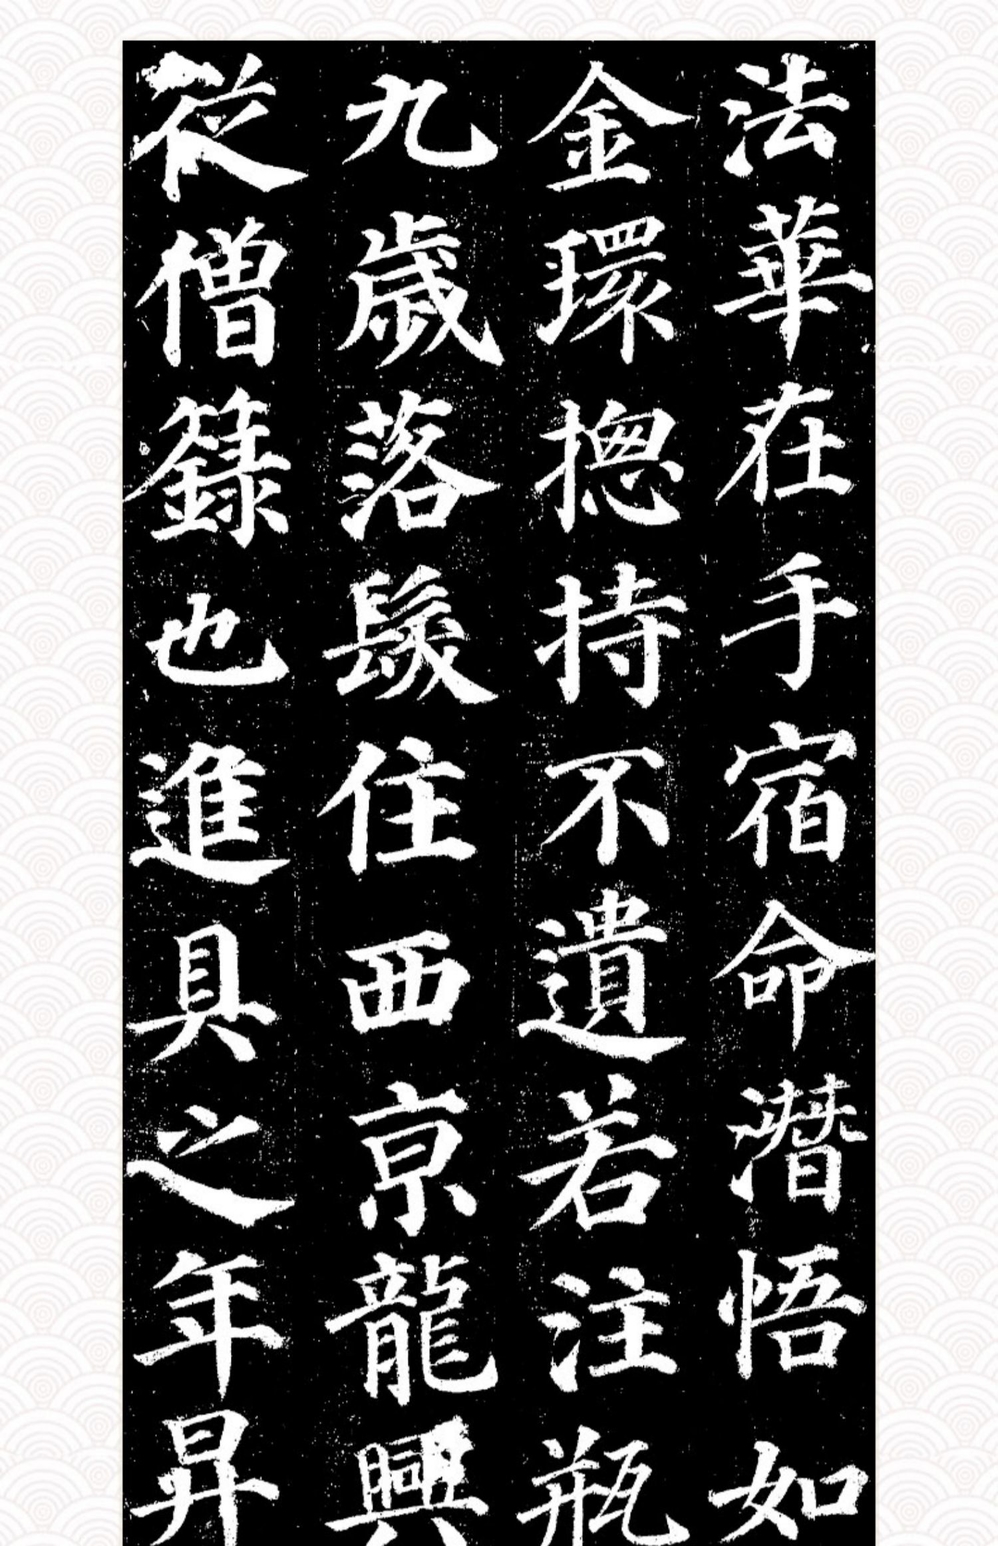 法華在手宿命潛悟如
金環揔持不遺若注瓶
九歲落髮住西京龍興
從僧籙也進具之年昇